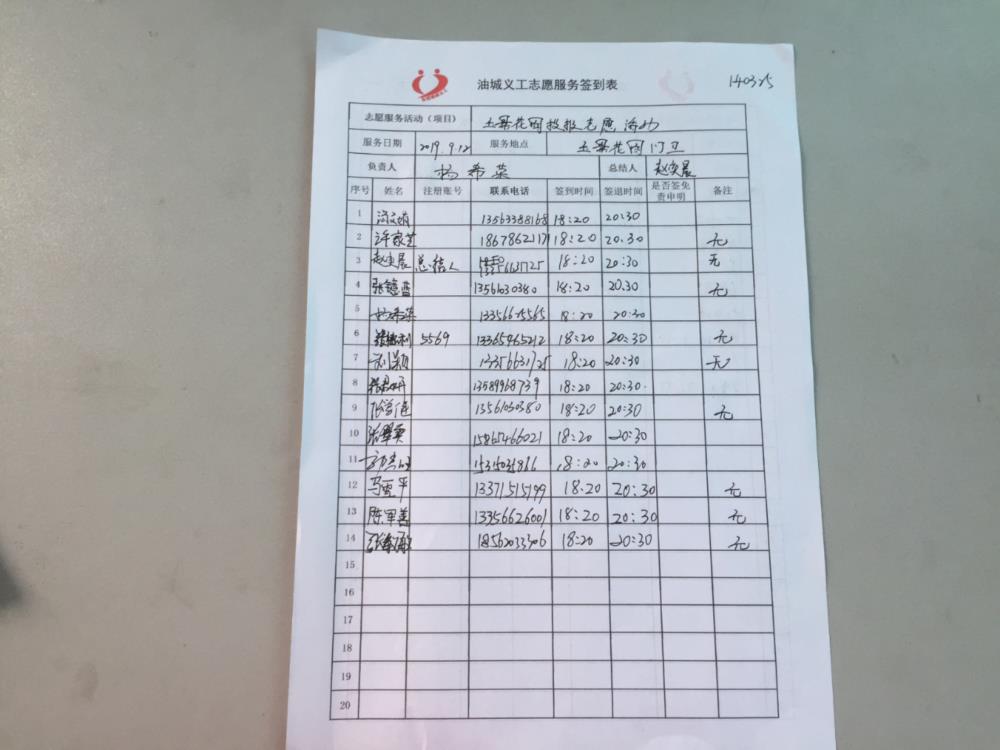 油城义工志愿服务签到表
140375
志愿服务活动（项目） 志愿活动
服务日期 2019.9.12 服务地点
负责人 杨希荣 总结人 赵奕晨
序号 姓名 注册账号 联系电话 签到时间 签退时间 是否签免责申明 备注
1 13563388168 18:20 20:30
2 许家芝 18678621171 18:20 20.30 无
3 赵奕晨 总结人 18:20 20:30 无
4 13561030380 18:20 20.30 无
5 杨希荣 13356675565 18:20 20:30
6 5569 13365465212 18:20 20:30 无
7 刘颖 13356631725 18:20 20:30 无
8 13589968739 18:20 20:30.
9 13561030380 18:20 20:30 无
10 15865466021 18:20 20:30
11 18:20 20:30
12 13371515199 18.20 20:30 无
13 陈军善 13356626001 18:20 20:30 无
14 18562033306 18:20 20:30 无
15
16
17
18
19
20